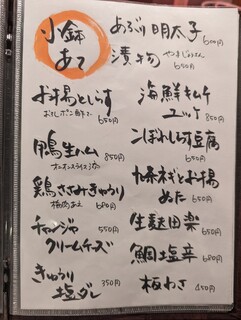 小鉢
あて
あぶり明太子
600円
漬物
650円
お揚としらす
おろしポン酢で
650円
鴨生ハム
オニオンスライスのせ
850円
鶏ささみきゅうり
梅肉あえ 680円
チャンジャ
クリームチーズ
550円
きゅうり
塩ダレ
350円
海鮮キムチ
ユッケ
880円
こぼれしらす豆腐
680円
九条ネギとお揚
ぬた
650円
生麩田楽
650円
鯛塩辛
680円
板わさ
450円